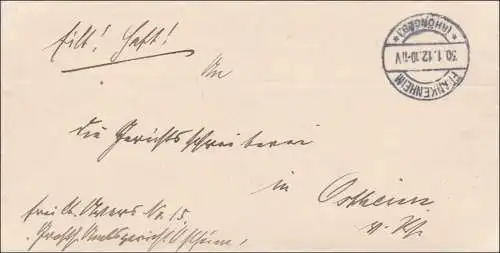 Eilt! Haft!
FRANKENHEIM
30.1.12.10-11V
*(RHÖNGEB.)*
An
die Gerichtsschreiberei
in Ostheim
v. Rh.
frei lt. Avers No 15.
Großh. Amtsgericht Ostheim,